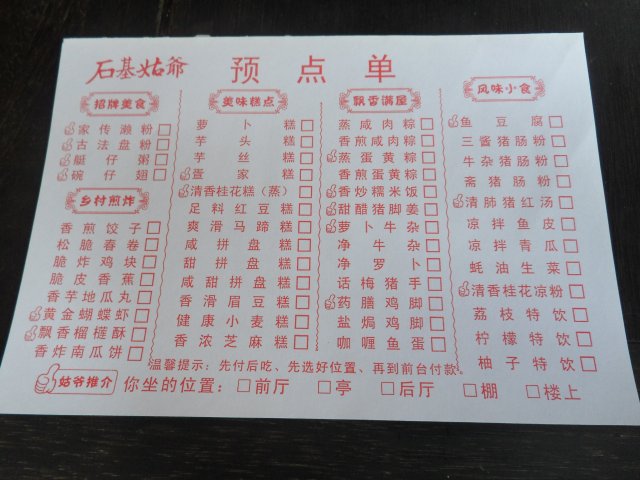 石基姑爷 预点单
招牌美食
家传濑粉
古法盘粉
艇仔粥
碗仔翅
乡村煎炸
香煎饺子
松脆春卷
脆炸鸡块
脆皮香蕉
香芋地瓜丸
黄金蝴蝶虾
飘香榴梿酥
香炸南瓜饼
美味糕点
萝卜糕
芋头糕
芋丝糕
疍家糕
清香桂花糕（蒸）
足料红豆糕
爽滑马蹄糕
咸拼盘糕
甜拼盘糕
咸甜拼盘糕
香滑眉豆糕
健康小麦糕
香浓芝麻糕
飘香满屋
蒸咸肉粽
香煎咸肉粽
蒸蛋黄粽
香煎蛋黄粽
香炒糯米饭
甜醋猪脚姜
萝卜牛杂
净牛杂
净罗卜
话梅猪手
药膳鸡脚
盐焗鸡脚
咖喱鱼蛋
风味小食
鱼豆腐
三酱猪肠粉
牛杂猪肠粉
斋猪肠粉
清肺猪红汤
凉拌鱼皮
凉拌青瓜
蚝油生菜
清香桂花凉粉
荔枝特饮
柠檬特饮
柚子特饮
温馨提示：先付后吃、先选好位置、再到前台付款。
姑爷推介 你坐的位置：□前厅 □亭 □后厅 □棚 □楼上